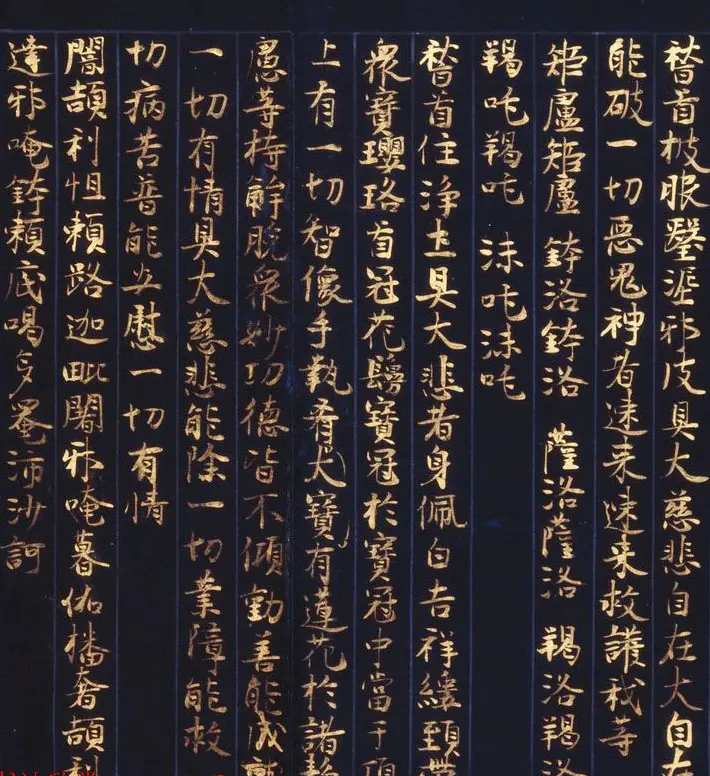 稽首板服翳涇邪皮具大慈悲自在大自在
能破一切惡鬼神者速来速来救護我等
矩盧矩盧 鉢洛鉢洛 薩洛薩洛 羯洛羯洛
羯吒羯吒 沫吒沫吒
稽首住淨土具大悲者身佩白吉祥綬頸帶
衆寶瓔珞首冠花鬘寶冠於寶冠中當于頂
上有一切智像手執脊大寶有蓮花於諸
慮等持解脫衆妙功德皆不傾動善能成
一切有情具大慈悲能除一切業障能救
切病苦普能安慰一切有情
闇頡利怛賴路迦毗闍邪唵暮伽播奢頡利
達邪唵鉢賴底喝多罨沛沙訶